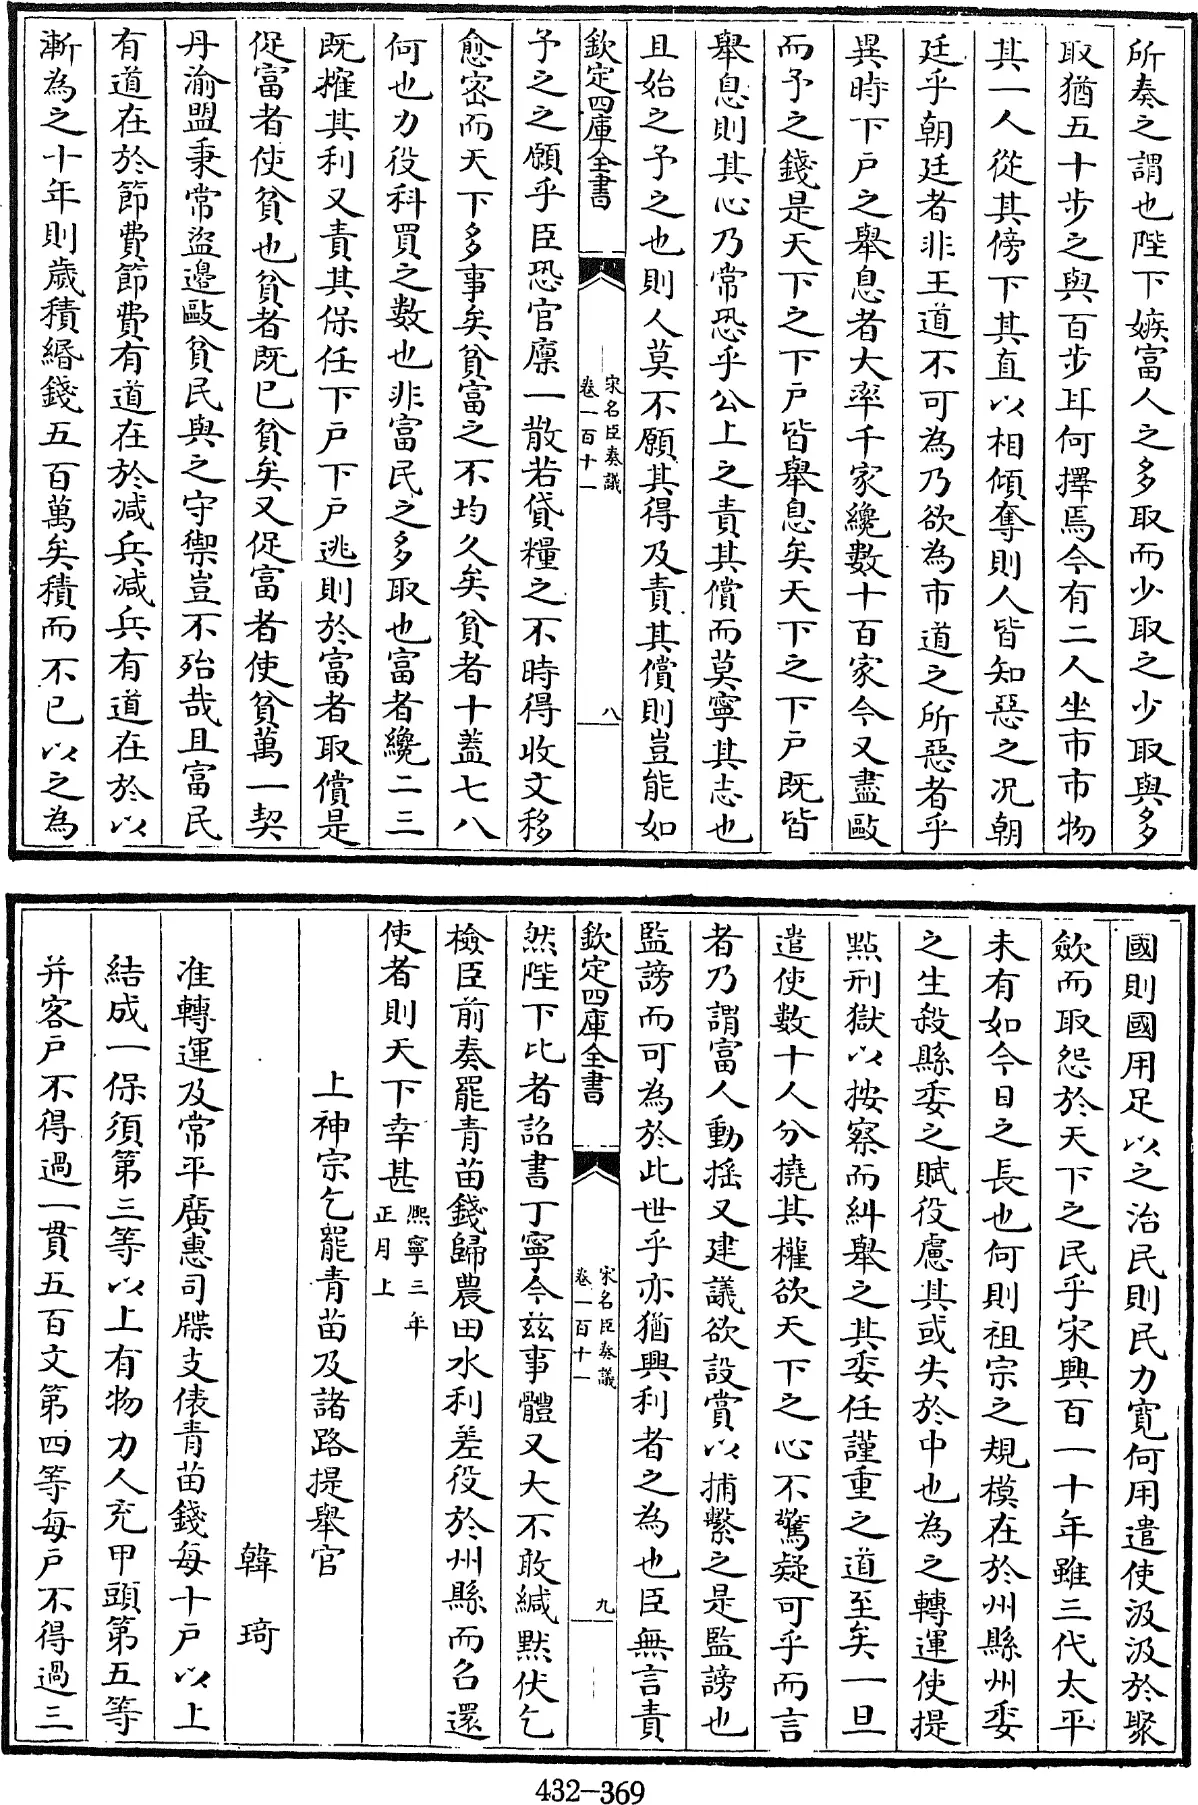 所奏之謂也陛下嫉富人之多取而少取之少取與多
取猶五十步之與百步耳何擇焉今有二人坐市市物
其一人從其傍下其直以相傾奪則人皆知惡之况朝
廷乎朝廷者非王道不可為乃欲為市道之所惡者乎
異時下户之舉息者大率千家纔數十百家今又盡敺
而予之錢是天下之下户皆舉息矣天下之下户既皆
舉息則其心乃常恐乎公上之責其償而莫寧其志也
且始之予之也則人莫不願其得及責其償則豈能如
欽定四庫全書
宋名臣奏議
卷一百十一
八
予之之願乎臣恐官廩一散若貸糧之不時得收文移
愈密而天下多事矣貧富之不均久矣貧者十蓋七八
何也力役科買之數也非富民之多取也富者纔二三
既擁其利又責其保任下户下户逃則於富者取償是
促富者使貧也貧者既已貧矣又促富者使貧萬一契
丹渝盟秉常盜邊敺貧民與之守禦豈不殆哉且富民
有道在於節費節費有道在於減兵減兵有道在於以
漸為之十年則歲積緡錢五百萬矣積而不已以之為
國則國用足以之治民則民力寛何用遣使汲汲於聚
斂而取怨於天下之民乎宋興百一十年雖三代太平
未有如今日之長也何則祖宗之規模在於州縣州委
之生殺縣委之賦役慮其或失於中也為之轉運使提
點刑獄以按察而糾舉之其委任謹重之道至矣一旦
遣使數十人分撓其權欲天下之心不驚疑可乎而言
者乃謂富人動摇又建議欲設賞以捕繫之是監謗也
監謗而可為於此世乎亦猶興利者之為也臣無言責
欽定四庫全書
宋名臣奏議
卷一百十一
九
然陛下比者詔書丁寧今兹事體又大不敢緘黙伏乞
檢臣前奏罷青苗錢歸農田水利差役於州縣而召還
使者則天下幸甚熙寧三年正月上
上神宗乞罷青苗及諸路提舉官
韓琦
准轉運及常平廣惠司牒支俵青苗錢每十户以上
結成一保須第三等以上有物力人充甲頭第五等
并客户不得過一貫五百文第四等每户不得過三
432-369